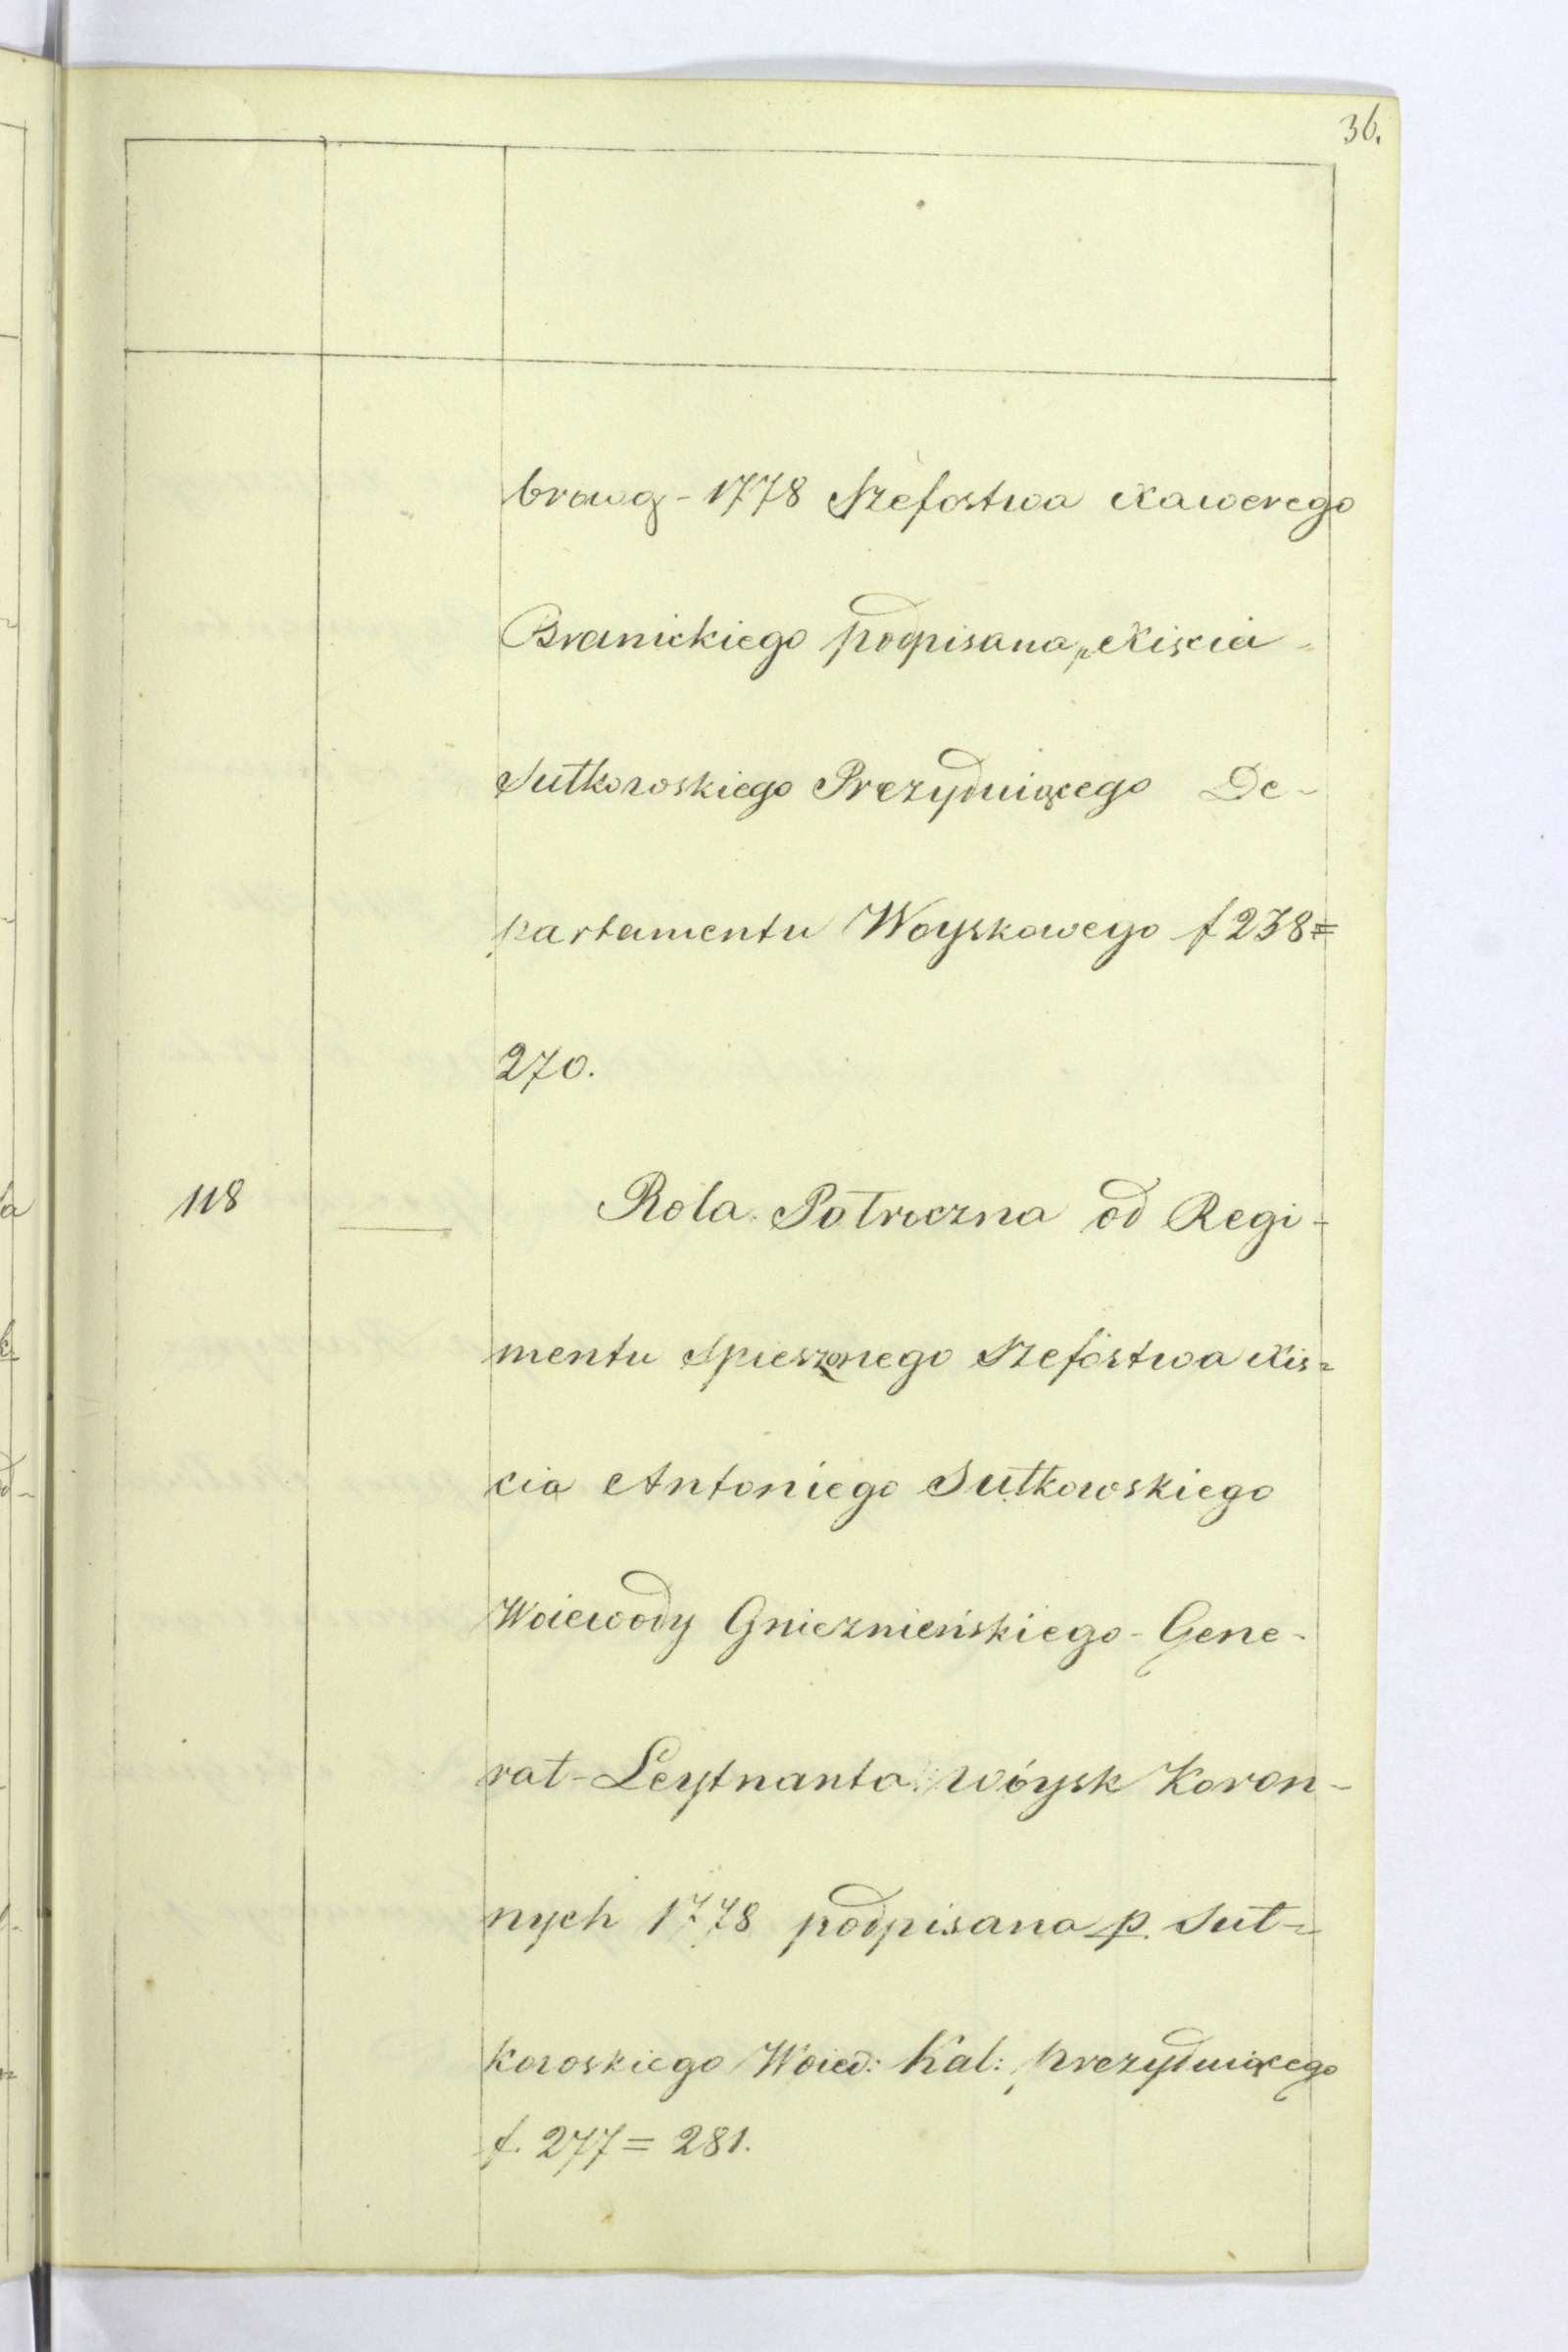 36.
browq - 1778 Szefostwa Xawerego
Branickiego podpisana p Xiscia -
Sułkowskiego Prezyduiącego De-
partamentu Woyskowego f 238=
270.
118 — Rola Półroczna od Regi-
mentu Spieszonego Szefostwa Xis=
cia Antoniego Sułkowskiego
Woiewody Gnieznieńskiego - Gene-
rał - Leytnanta Wóysk Koron-
nych 1778 podpisana p. Suł=
kowskiego Woiew: Kal: prezyduiącego
f. 277 = 281.